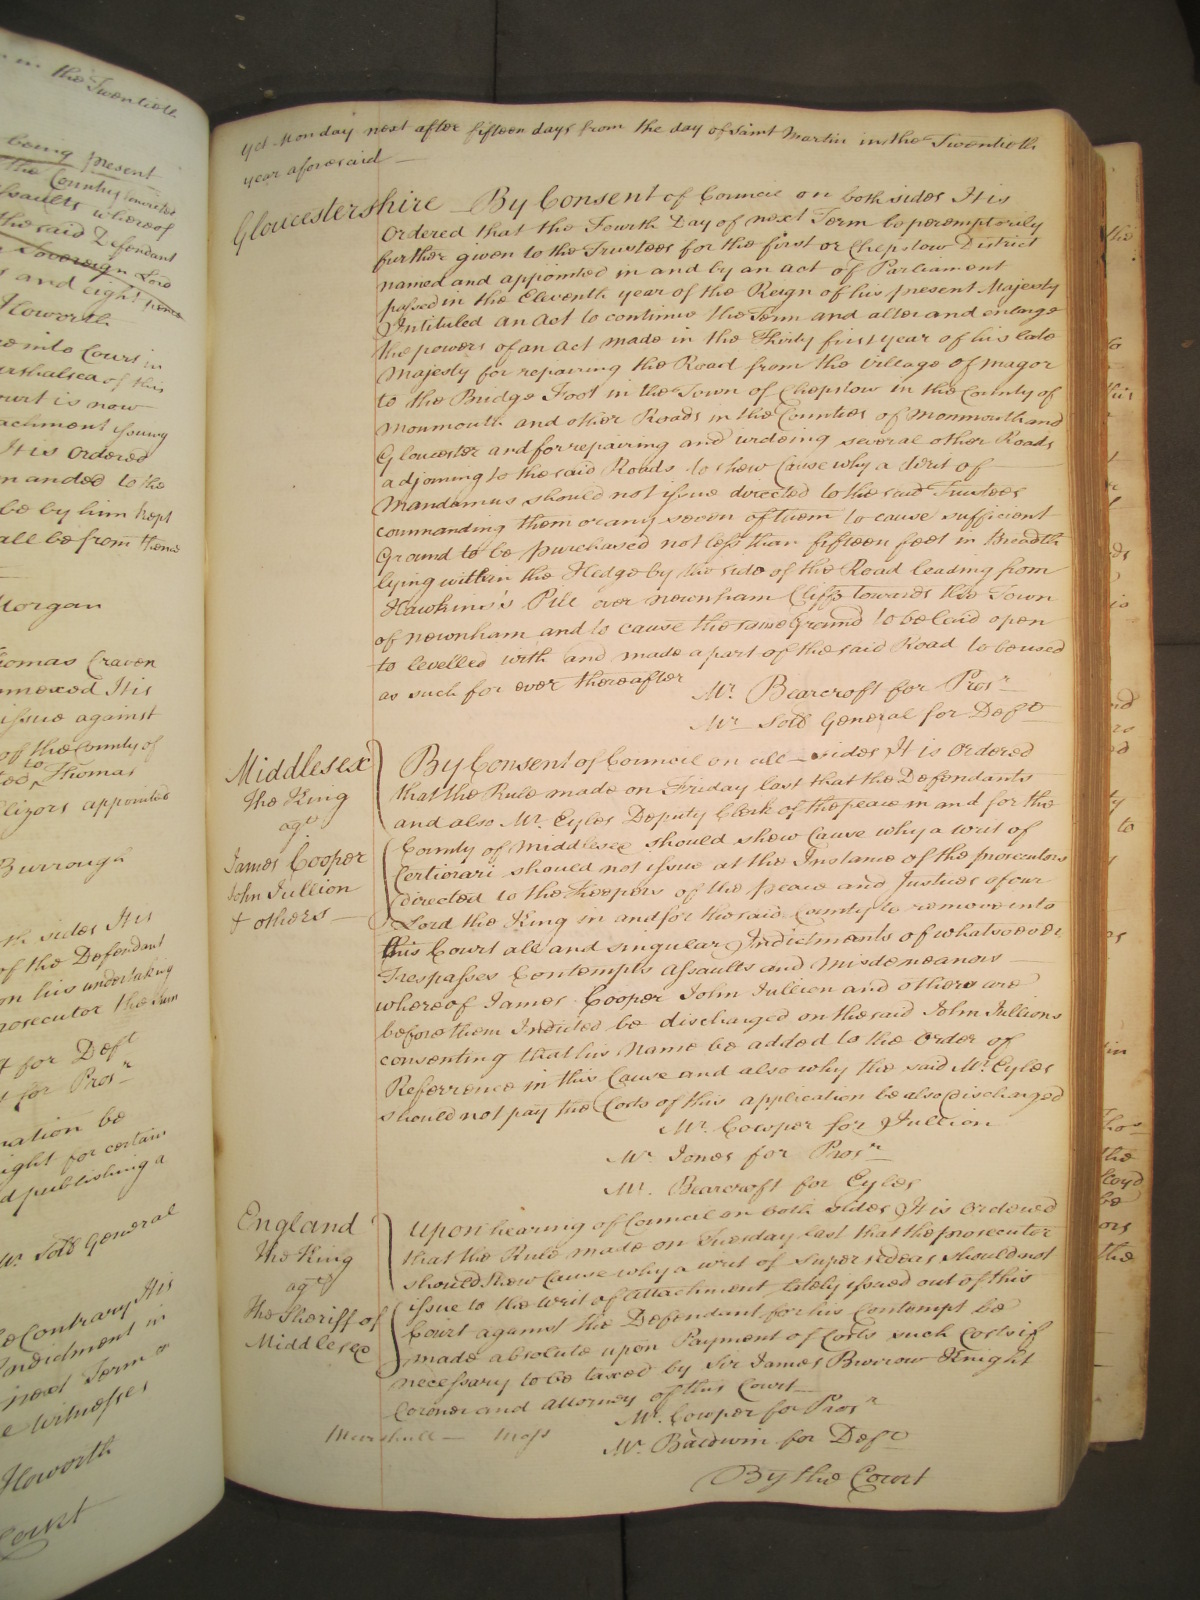 in the Twentieth
being present
the County
assaults whereof
the said Defendant
Sovereign Lord
and eight pence
Howorth
into Court in
Marshalsea of this
Court is now
attachment issuing
It is Ordered
manded to the
be by him kept
all be from thence
Morgan
Thomas Craven
annexed It is
issue against
of the County of
to Thomas
Elizors appointed
Burrough
th sides It is
of the Defendant
on his undertaking
prosecutor the sum
for Deft
for Prosr
ation be
ight for certain
d publishing a
Mr. Sollr General
Contrary It is
Indictment in
next Term or
witnesses
Howorth
Court
yet Monday next after fifteen days from the day of Saint Martin in the Twentieth
year aforesaid
Gloucestershire By Consent of Councill on both sides It is
Ordered that the Fourth Day of next Term be peremptorily
further given to the Trustees for the first or Chepstow District
named and appointed in and by an Act of Parliament
passed in the Eleventh year of the Reign of his present Majesty
Intituled an Act to continue the Term and alter and enlarge
the powers of an Act made in the Thirty first year of his late
Majesty for repairing the Road from the Village of Magor
to the Bridge Foot in the Town of Chepstow in the County of
Monmouth and other Roads in the Counties of Monmouth and
Gloucester and for repairing and widening several other Roads
adjoining to the said Roads to shew Cause why a Writ of
Mandamus should not issue directed to the said Trustees
commanding them or any seven of them to cause sufficient
Ground to be purchased not less than fifteen feet in Breadth
lying within the Hedge by the side of the Road leading from
Hawkins's Pill over Newnham Cliffs towards the Town
of Newnham and to cause the same Ground to be laid open
to levelled with and made a part of the said Road to be used
as such for ever thereafter
Mr. Bearcroft for Prosr
Mr. Sollr General for Deft
Middlesex By Consent of Councill on all sides It is Ordered
the King that the Rule made on Friday last that the Defendants
agt and also Mr. Eyles Deputy Clerk of the peace in and for the
James Cooper County of Middlesex should shew Cause why a writ of
John Jullion Certiorari should not issue at the Instance of the prosecutors
& others directed to the Keepers of the peace and Justices of our
Lord the King in and for the said County to remove into
this Court all and singular Indictments of whatsoever
Trespasses Contempts Assaults and Misdemeanors
whereof James Cooper John Jullion and others are
before them Indicted be discharged on the said John Jullions
consenting that his Name be added to the Order of
Referrence in this Cause and also why the said Mr. Eyles
should not pay the Costs of this application be also discharged
Mr. Cowper for Jullion
Mr. Jones for Prosr
Mr. Bearcroft for Eyles
England Upon hearing of Councill on both sides It is Ordered
the King that the Rule made on Tuesday last that the prosecutor
agt should shew Cause why a writ of Supersedeas should not
the Sheriff of issue to the Writ of Attachment lately issued out of this
Middlesex Court against the Defendant for his Contempt be
made absolute upon Payment of Costs such Costs if
necessary to be taxed by Sir James Burrow Knight
Coroner and Attorney of this Court
Mr. Cowper for Prosr
Marshall Moss
Mr. Baldwin for Deft
By the Court